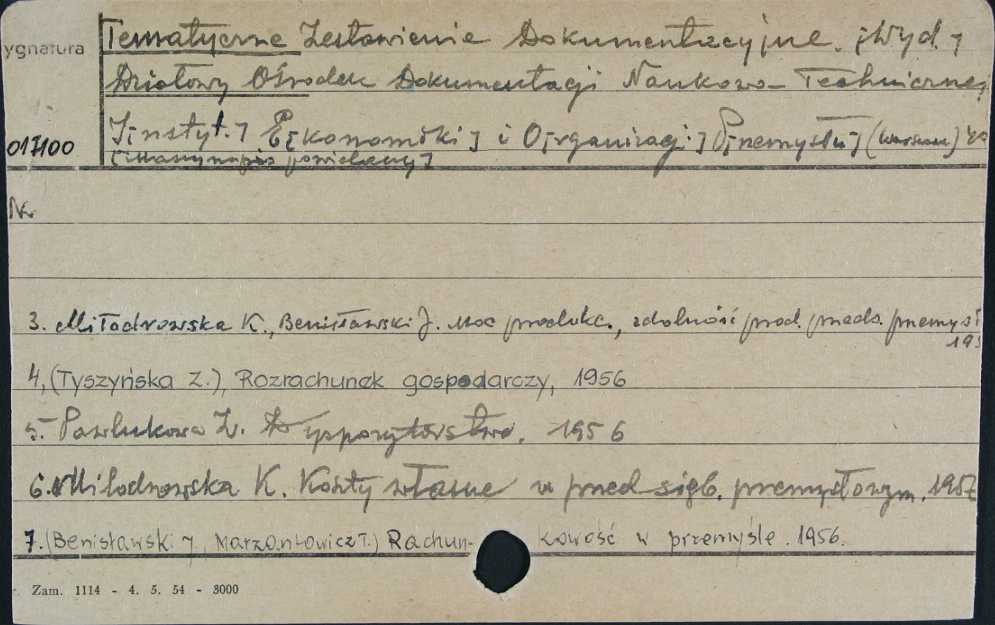 ygnatura
Tematyczne Zestawienie Dokumentacyjne. [Wyd.]
Działowy Ośrodek Dokumentacji Naukowo-Technicznej
017100
I[nstyt.] E[konomiki] i O[rganizacji] P[rzemysłu] (Warszawa)
[Maszynopis powielany]
Nr.
3. Miłodrowska K., Benisławski J. Moc produkc., zdolność prod. przeds. przemysł
195
4, (Tyszyńska Z.), Rozrachunek gospodarczy, 1956
5. Pawlukowa Z. Dyspozytorstwo. 1956
6. Miłodrowska K. Koszty własne w przedsięb. przemysłowym, 1957
7. (Benisławski J, Marzantowicz T.) Rachunkowość w przemyśle. 1956.
Zam. 1114 - 4. 5. 54 - 3000